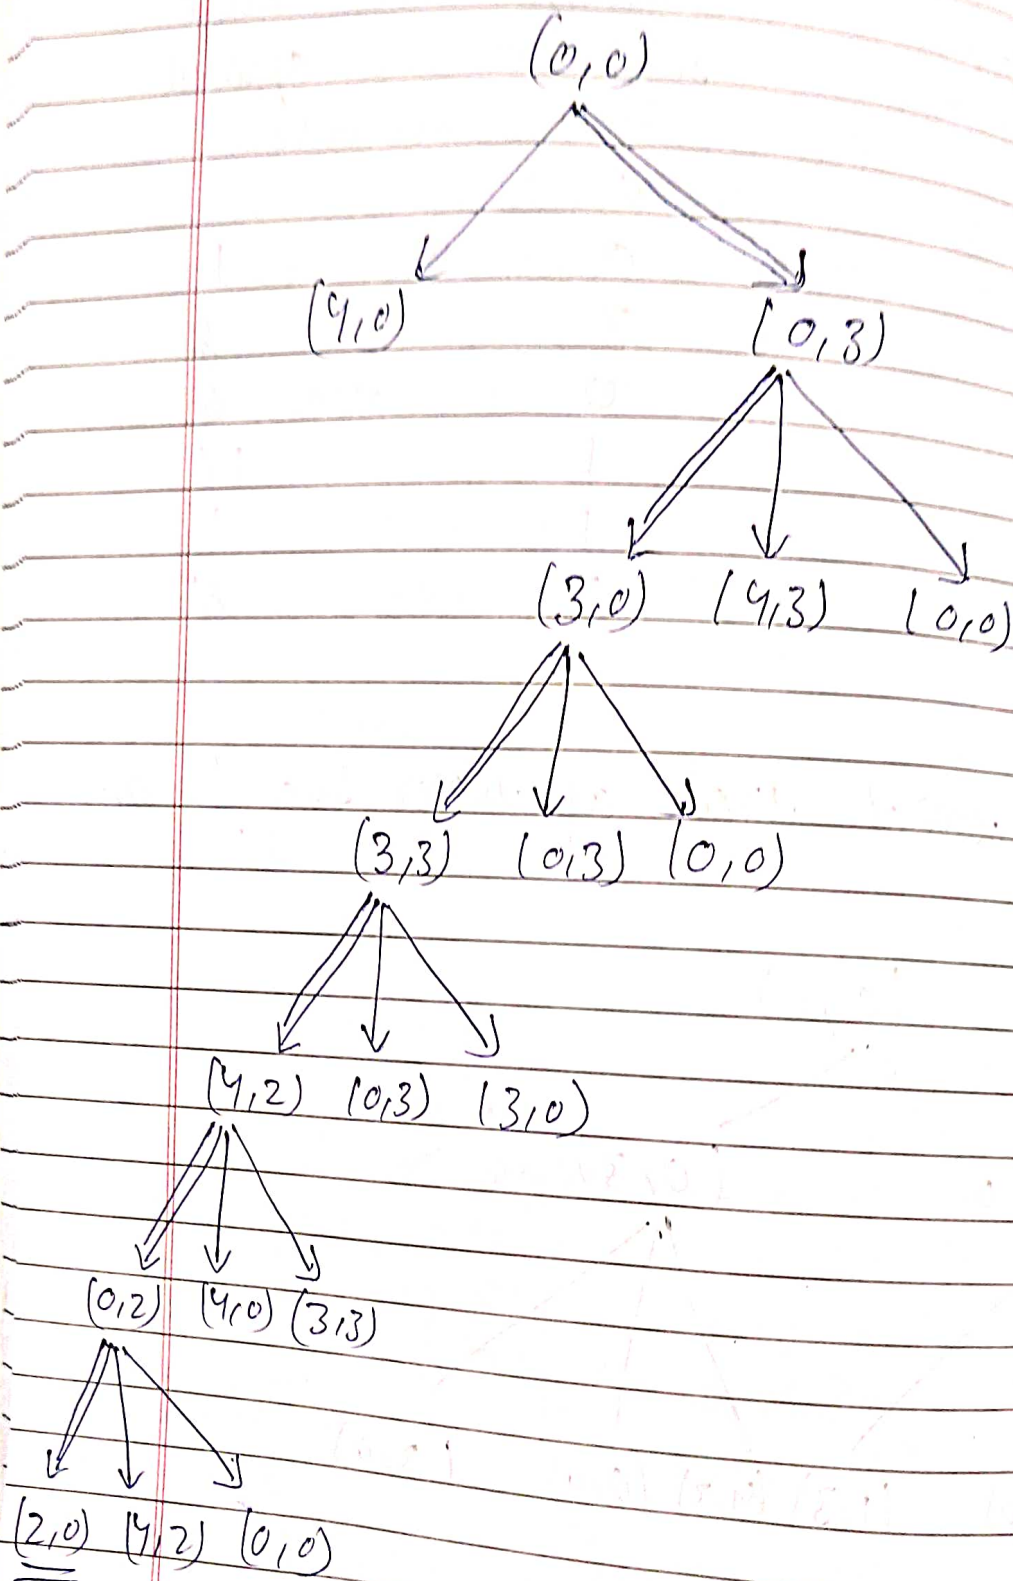 (0,0)
(4,0) (0,3)
(3,0) (4,3) (0,0)
(3,3) (0,3) (0,0)
(4,2) (0,3) (3,0)
(0,2) (4,0) (3,3)
(2,0) (4,2) (0,0)